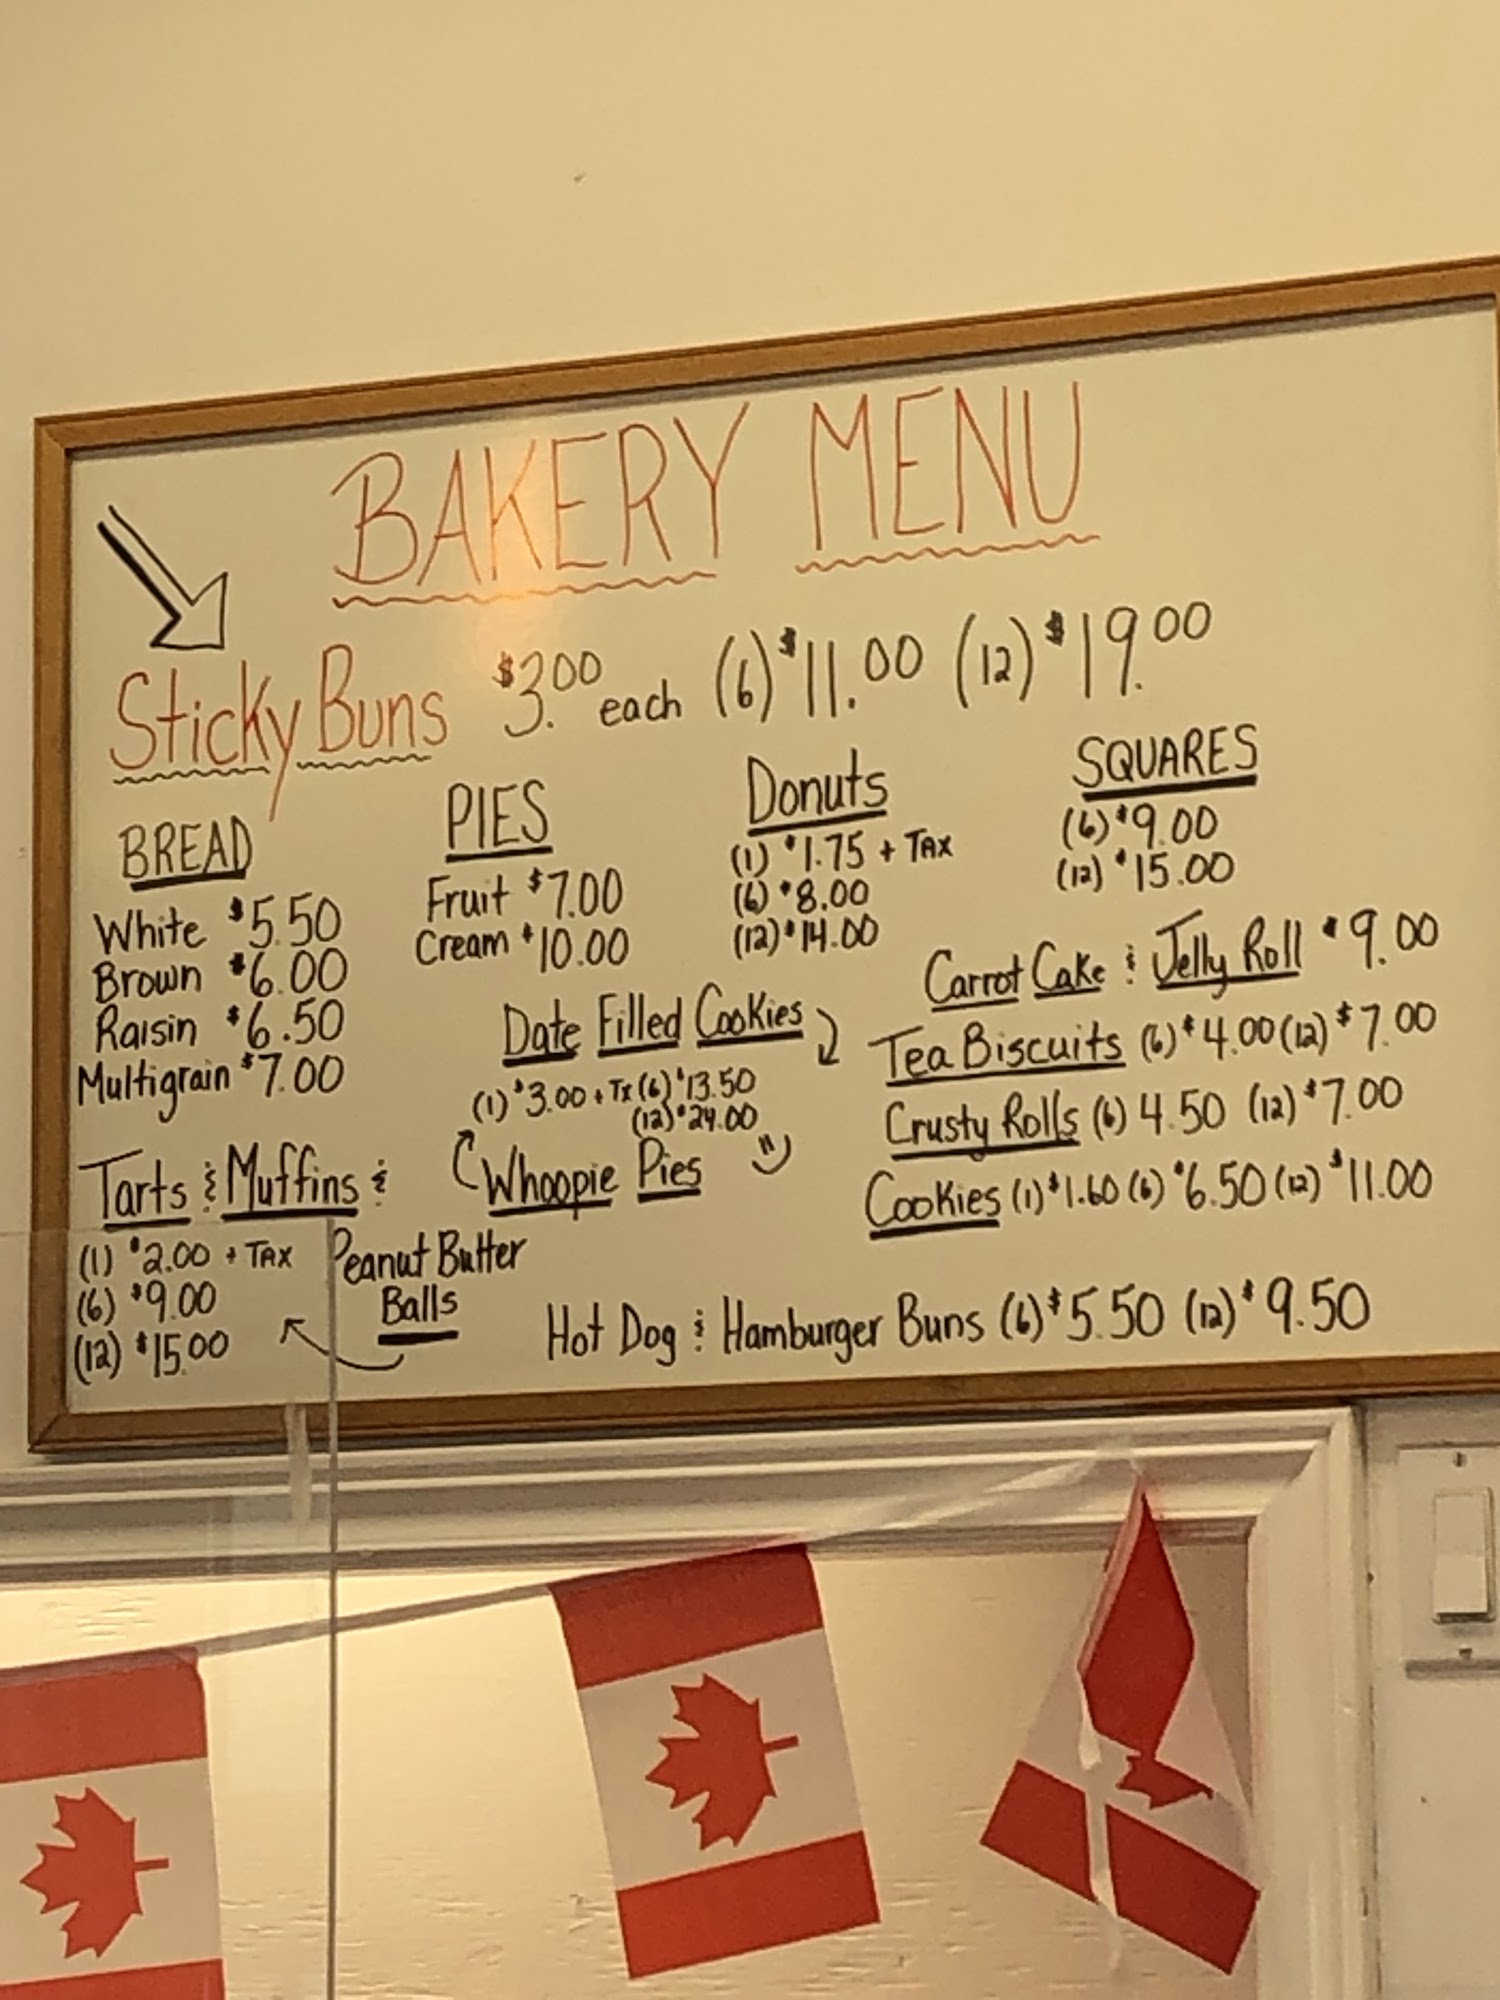 BAKERY MENU
Sticky Buns $3.00 each (6) $11.00 (12) $19.00
BREAD
White $5.50
Brown $6.00
Raisin $6.50
Multigrain $7.00
PIES
Fruit $7.00
Cream $10.00
Donuts
(1) $1.75 + TAX
(6) $8.00
(12) $14.00
SQUARES
(6) $9.00
(12) $15.00
Carrot Cake & Jelly Roll $9.00
Tea Biscuits (6) $4.00 (12) $7.00
Crusty Rolls (6) 4.50 (12) $7.00
Cookies (1) $1.60 (6) $6.50 (12) $11.00
Date Filled Cookies
(1) $3.00 + Tx (6) $13.50
(12) $24.00
Whoopie Pies
Tarts & Muffins &
Peanut Butter
Balls
(1) $2.00 + TAX
(6) $9.00
(12) $15.00
Hot Dog & Hamburger Buns (6) $5.50 (12) $9.50